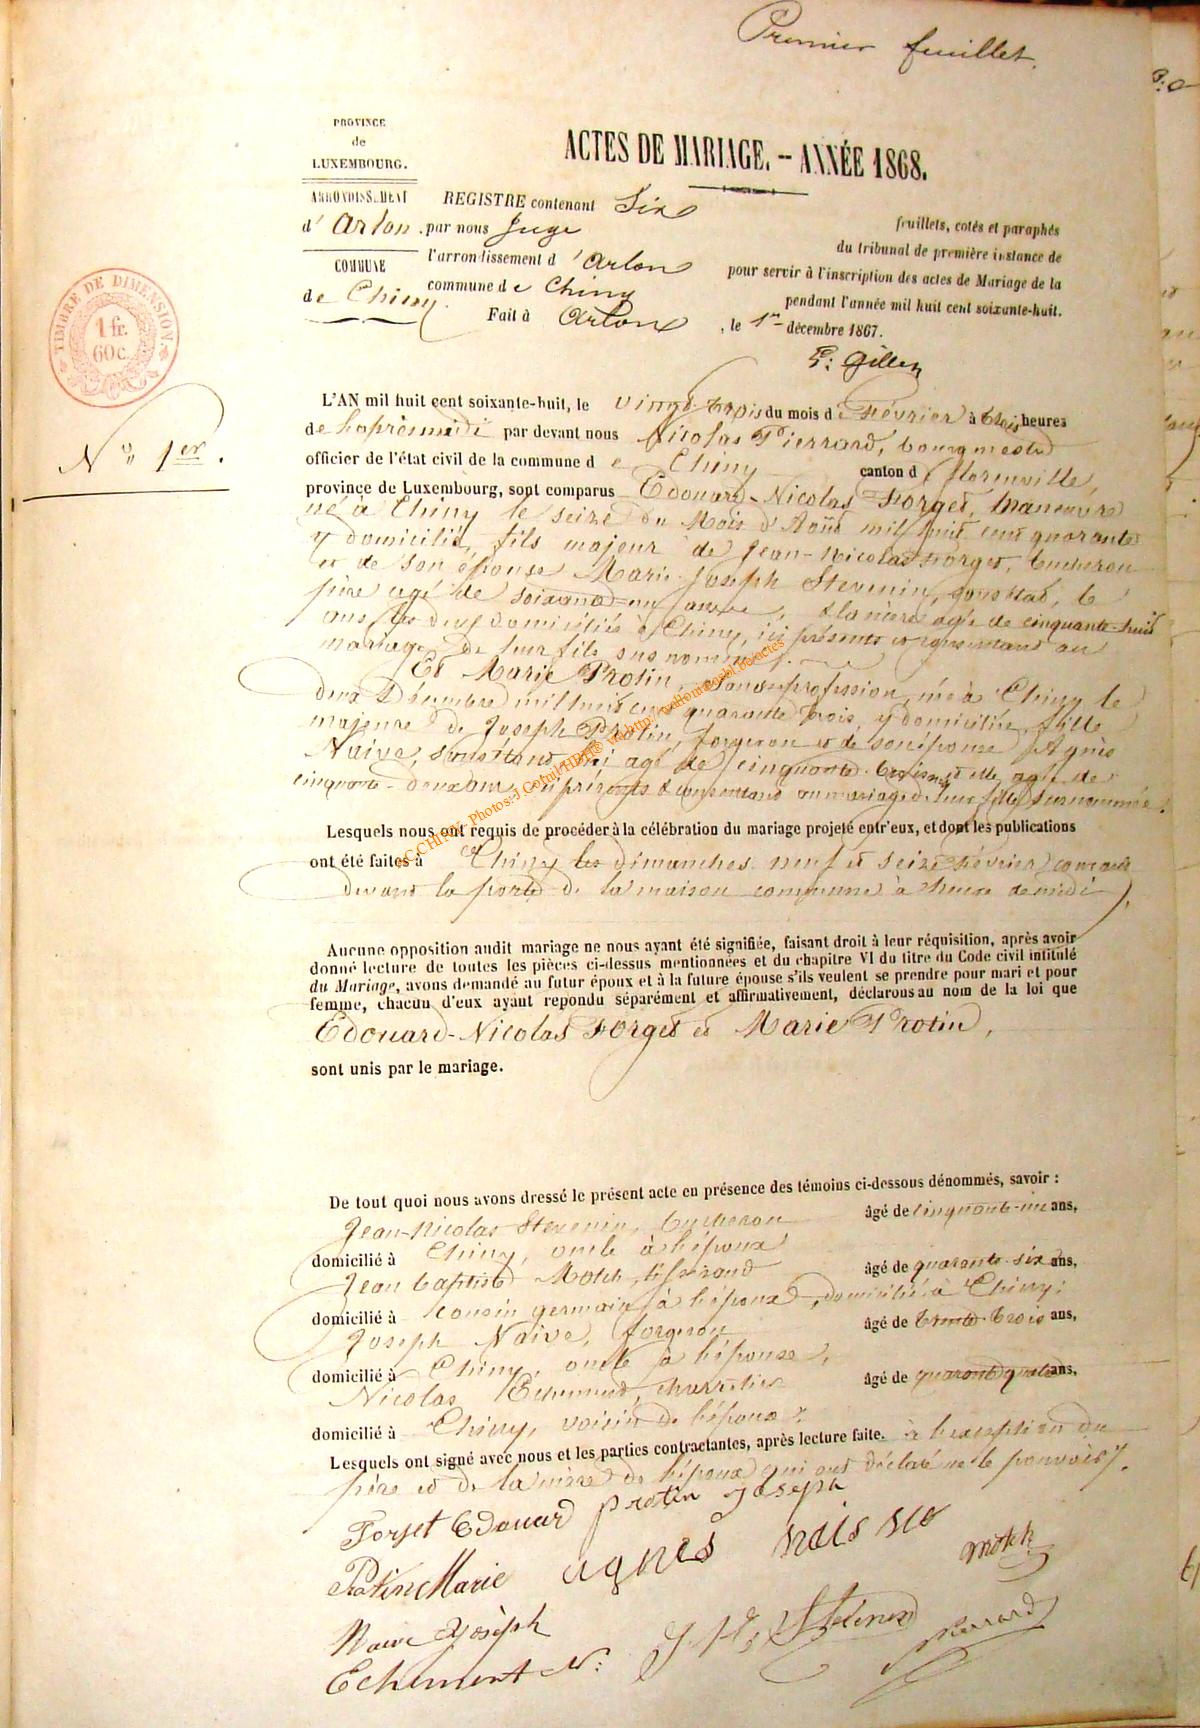 Premier feuillet.
PROVINCE
de
LUXEMBOURG.
ARRONDISSEMENT
d'Arlon.
COMMUNE
de Chiny.
ACTES DE MARIAGE. — ANNÉE 1868.
REGISTRE contenant Six feuillets, cotés et paraphés
par nous Juge du tribunal de première instance de
l'arrondissement d'Arlon pour servir à l'inscription des actes de Mariage de la
commune de Chiny pendant l'année mil huit cent soixante-huit.
Fait à Arlon, le 1er décembre 1867.
TIMBRE DE DIMENSION.
1 fr.
60 c.
N° 1er.
L'AN mil huit cent soixante-huit, le vingt-trois du mois de Février à trois heures
de l'après midi par devant nous Nicolas Pierrard, bourgmestre
officier de l'état civil de la commune de Chiny canton de Florenville,
province de Luxembourg, sont comparus Edouard-Nicolas Forget, manœuvre
né à Chiny le seize du Mois d'Août mil huit cent quarante
y domicilié, fils majeur de Jean-Nicolas Forget, bucheron
et de son épouse Marie-Joseph Stevenin, sans état, le
père agé de soixante-un ans, & la mère agée de cinquante-huit
ans, tous deux domiciliés à Chiny, ici présents et consentant au
mariage de leur fils susnommé.
Et Marie Protin, sans profession, née à Chiny le
deux Décembre mil huit cent quarante trois, y domiciliée, fille
majeure de Joseph Protin, forgeron et de son épouse Agnès
Naive, sans état, lui agé de cinquante-trois ans et elle agée de
cinquante-deux ans, ici présents & consentant au mariage de leur fille susnommée.
©CCHIPW - Photos: J.Collul/HBH® Web: http://wallonica.gbl.be/actes
Lesquels nous ont requis de procéder à la célébration du mariage projeté entr'eux, et dont les publications
ont été faites à Chiny les dimanches neuf et seize Février courant
devant la porte de la maison commune à l'heure de midi.
Aucune opposition audit mariage ne nous ayant été signifiée, faisant droit à leur réquisition, après avoir
donné lecture de toutes les pièces ci-dessus mentionnées et du chapitre VI du titre du Code civil intitulé
du Mariage, avons demandé au futur époux et à la future épouse s'ils veulent se prendre pour mari et pour
femme, chacun d'eux ayant repondu séparément et affirmativement, déclarons au nom de la loi que
Edouard-Nicolas Forget et Marie Protin,
sont unis par le mariage.
De tout quoi nous avons dressé le présent acte en présence des témoins ci-dessous dénommés, savoir :
Jean-Nicolas Stevenin, bucheron âgé de cinquante-un ans,
domicilié à Chiny, oncle à l'époux
Jean baptiste Motch, tisserand âgé de quarante-six ans,
domicilié à cousin germain à l'époux, domicilié à Chiny;
Joseph Naive, forgeron âgé de trente-trois ans,
domicilié à Chiny, oncle à l'épouse,
Nicolas Echement, charretier âgé de quarante quatre ans,
domicilié à Chiny, voisin de l'époux.
Lesquels ont signé avec nous et les parties contractantes, après lecture faite. à l'exception du
père et de la mère de l'époux qui ont déclaré ne le pouvoir.
Forget Edouard protin Joseph
Protin Marie agnes naisve Motch
Naive Joseph
Echement N. Pierrard